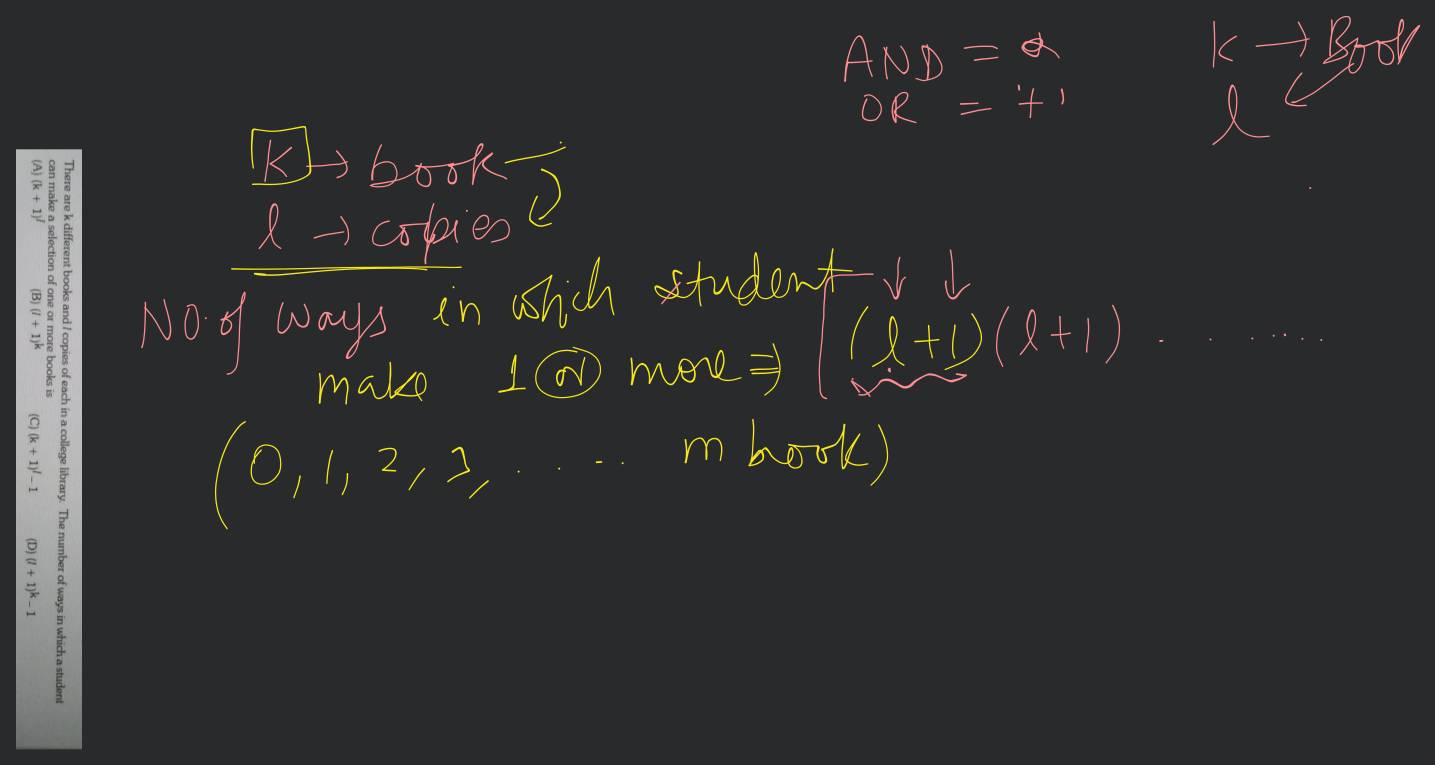 AND = 
OR = '+'
k → Book
l
k → book
l → copies
No. of ways in which student
make 1 or more ⇒ (l+1)(l+1) . . . . . . .
(0, 1, 2, 3, . . . . . m book)
There are k different books and l copies of each in a college library. The number of ways in which a student
can make a selection of one or more books is
(A) (k + 1)^l (B) (l + 1)^k (C) (k + 1)^l – 1 (D) (l + 1)^k – 1